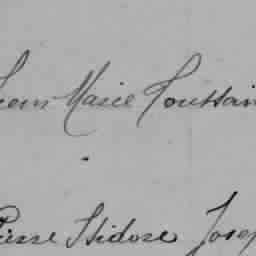 Jean Marie Toussain
Pierre Isidore Josep